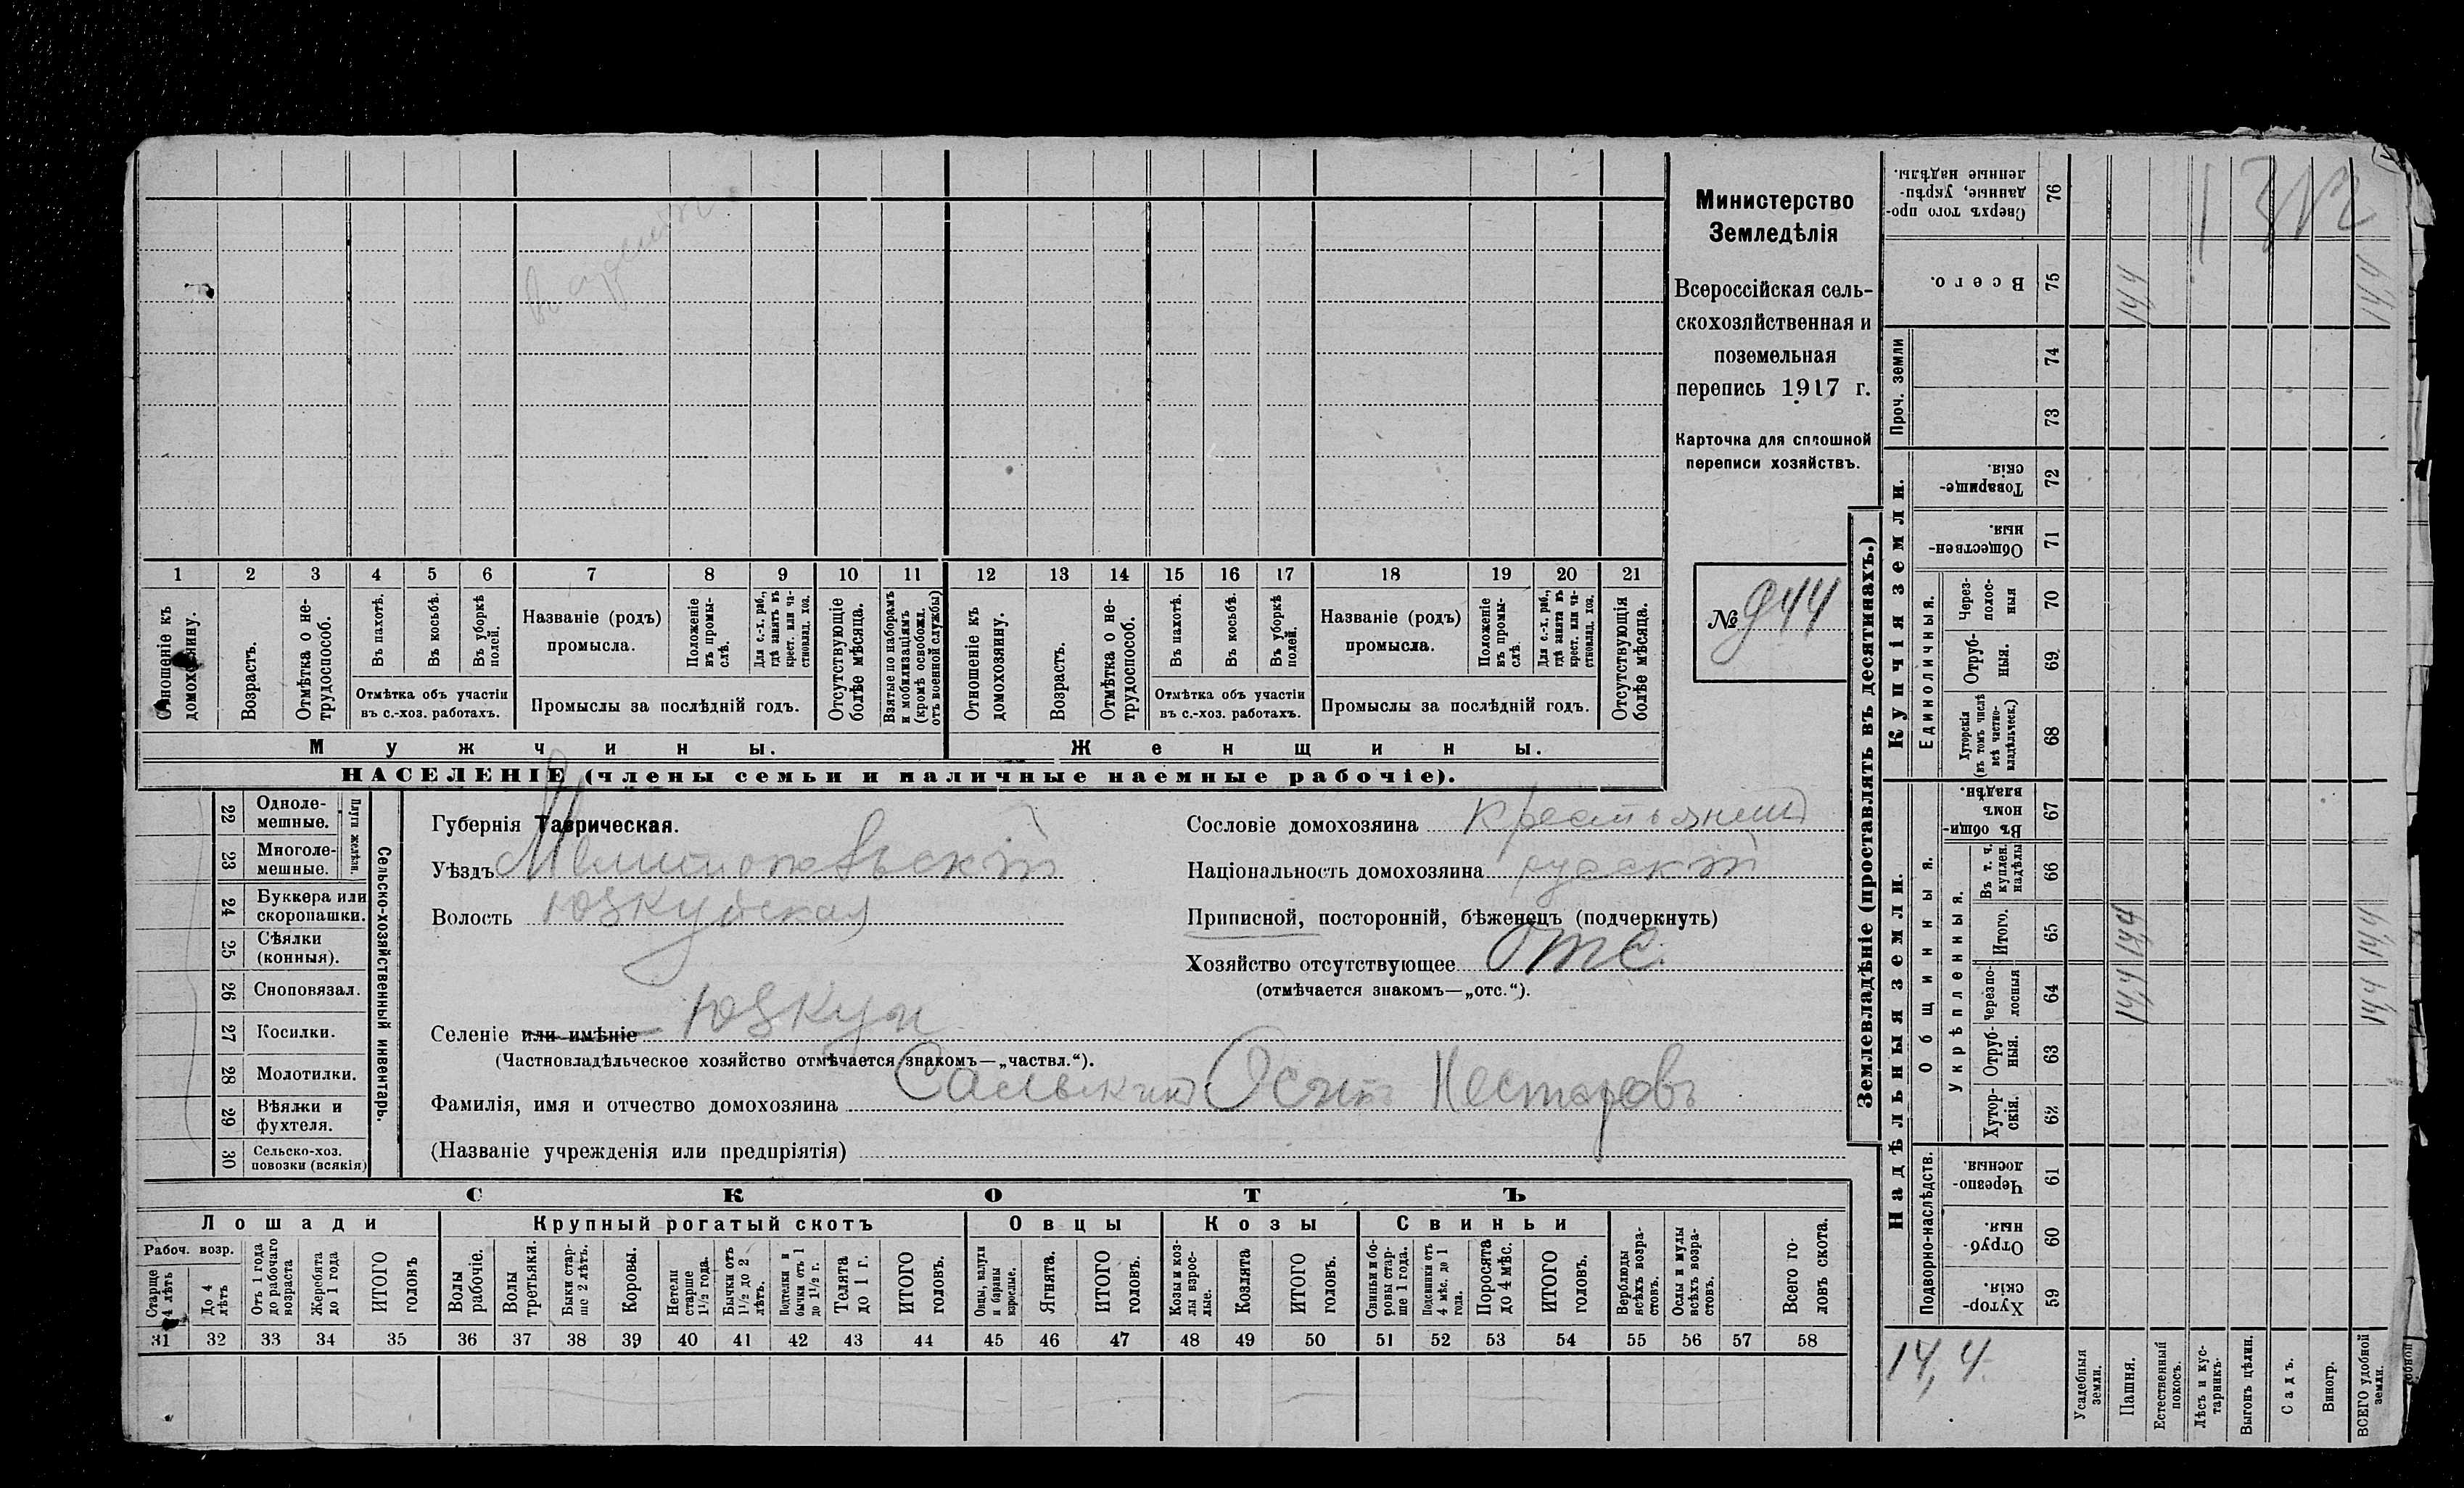 Министерство
Земледѣлія
Всероссійская сель-
скохозяйственная и
поземельная
перепись 1917 г.
Карточка для сплошной
переписи хозяйствъ.
№ 944
1 2 3 4 5 6 7 8 9 10 11 12 13 14 15 16 17 18 19 20 21
Отношеніе къ домохозяину.
Возрастъ.
Отмѣтка о не-трудоспособ.
Въ пахотѣ.
Въ косьбѣ.
Въ уборкѣ полей.
Отмѣтка объ участіи
въ с.-хоз. работахъ.
Названіе (родъ)
промысла.
Положеніе въ промы-слѣ.
Для с.-х. раб., гдѣ занятъ въ крест. или ча-стновлад. хоз.
Промыслы за послѣдній годъ.
Отсутствующіе болѣе мѣсяца.
Взятые по наборамъ и мобилизаціямъ (кромѣ освобожд. отъ военной службы)
Отношеніе къ домохозяину.
Возрастъ.
Отмѣтка о не-трудоспособ.
Въ пахотѣ.
Въ косьбѣ.
Въ уборкѣ полей.
Отмѣтка объ участіи
въ с.-хоз. работахъ.
Названіе (родъ)
промысла.
Положеніе въ промы-слѣ.
Для с.-х. раб., гдѣ занята въ крест. или ча-стновлад. хоз.
Промыслы за послѣдній годъ.
Отсутствующія болѣе мѣсяца.
Мужчины.
Женщины.
НАСЕЛЕНІЕ (члены семьи и наличные наемные рабочіе).
Сельско-хозяйственный инвентарь.
Плуги желѣзн.
22 Одноле-мешные.
23 Многоле-мешные.
24 Буккера или скоропашки.
25 Сѣялки (конныя).
26 Сноповязал.
27 Косилки.
28 Молотилки.
29 Вѣялки и фухтеля.
30 Сельско-хоз. повозки (всякія)
Губернія Таврическая.
Уѣздъ Мелитопольскій
Волость Юзкуйская
Сословіе домохозяина крестьянинъ
Національность домохозяина русскій
Приписной, посторонній, бѣженецъ (подчеркнуть)
Хозяйство отсутствующее отс.
(отмѣчается знакомъ—„отс.“).
Селеніе или имѣніе Юзкуи
(Частновладѣльческое хозяйство отмѣчается знакомъ—„частвл.“).
Фамилія, имя и отчество домохозяина Осипъ Нестеровъ
(Названіе учрежденія или предпріятія)
СКОТЪ
Лошади
Рабоч. возр.
Старше 4 лѣтъ
До 4 лѣтъ
Отъ 1 года до рабочаго возраста
Жеребята до 1 года
ИТОГО головъ
Крупный рогатый скотъ
Волы рабочіе.
Волы третьяки.
Быки стар-ше 2 лѣтъ.
Коровы.
Нетели старше 1½ года.
Бычки отъ 1½ до 2 лѣтъ.
Подтелки и бычки отъ 1 до 1½ г.
Телята до 1 г.
ИТОГО головъ.
Овцы
Овцы, валухи и бараны взрослые.
Ягнята.
ИТОГО головъ.
Козы
Козы и коз-лы взрос-лые.
Козлята
ИТОГО головъ.
Свиньи
Свиньи и бо-ровы стар-ше 1 года.
Подсвинки отъ 4 мѣс. до 1 года.
Поросята до 4 мѣс.
ИТОГО головъ.
Верблюды всѣхъ возра-стовъ.
Ослы и мулы всѣхъ возра-стовъ.
Всего го-ловъ скота.
31 32 33 34 35 36 37 38 39 40 41 42 43 44 45 46 47 48 49 50 51 52 53 54 55 56 57 58
Землевладѣніе (проставлять въ десятинахъ.)
Купчія земли.
Проч. земли
Сверхъ того про-данные, укрѣп-ленные надѣлы. 76
Всего. 75 14,4 14,4
74
73
Товарище-скія. 72
Обществен-ныя. 71
Единоличныя.
Через-полос-ныя 70
Отруб-ныя. 69
Хуторскія (въ томъ числѣ всѣ частно-владѣльческ.) 68
Надѣльныя земли.
Общинныя.
Въ общи-номъ владѣн. 67
Укрѣпленныя.
Въ т. ч. куплен. надѣлы 66
Итого. 65 14,4 14,4
Черезпо-лосныя 64 14,4 14,4
Отруб-ныя. 63
Хутор-скія. 62
Подворно-наслѣдств.
Черезпо-лосныя. 61
Отруб-ныя. 60
Хутор-скія 59
14,4
Усадебныя земли.
Пашня.
Естественный покосъ.
Лѣсъ и кус-тарникъ.
Выгонъ цѣлин.
Садъ.
Виногр.
ВСЕГО удобной земли.